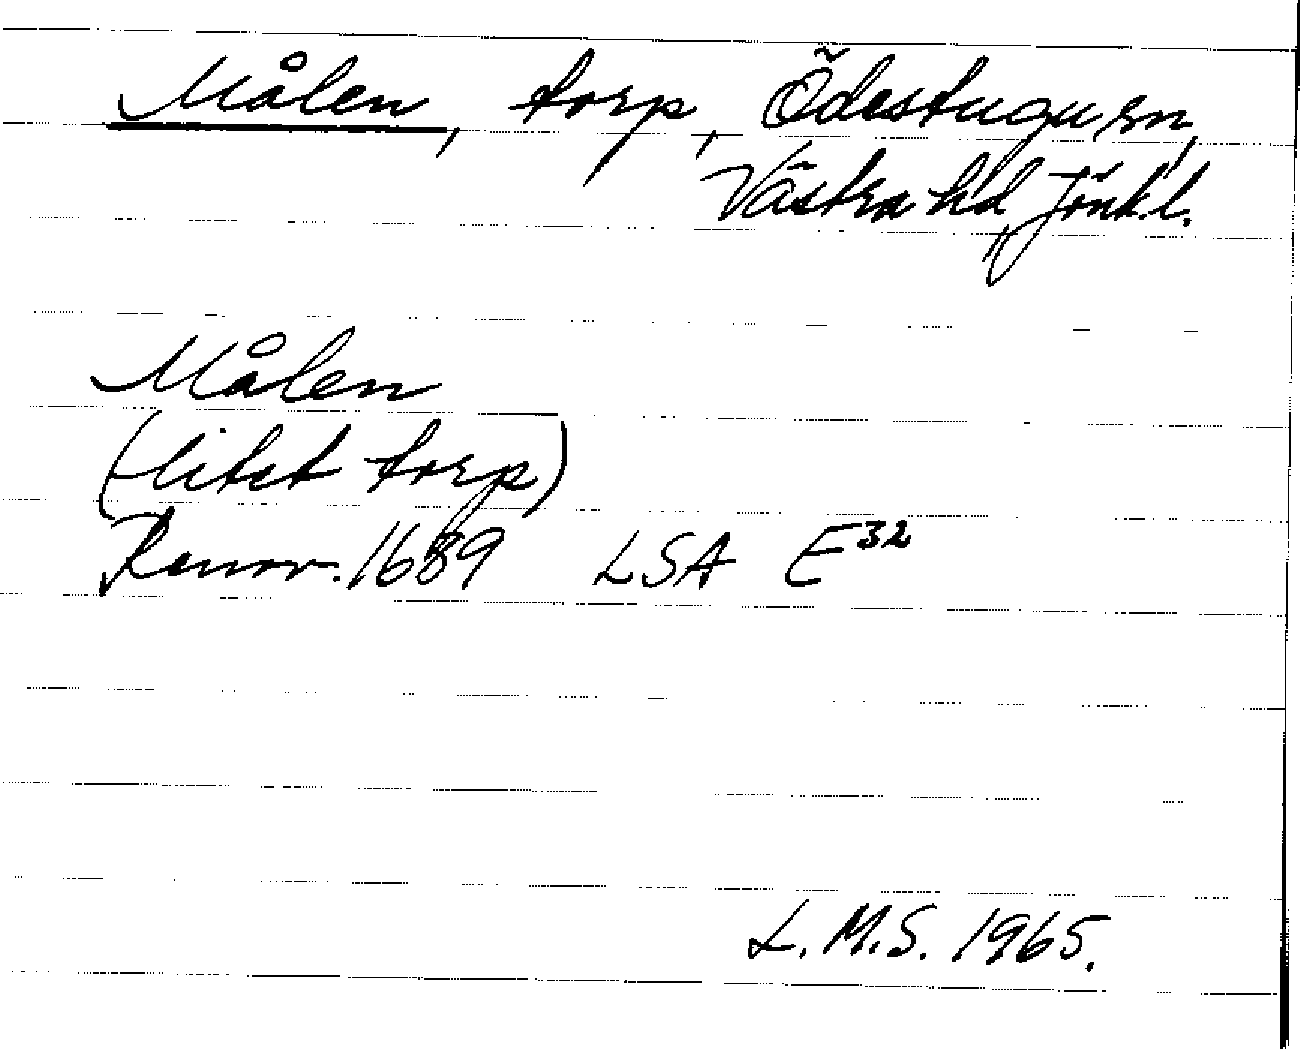 Målen, torp, Ödestugu sn,
Västra hd, Jönk.l.
Målen
(litet torp)
Renov. 1689 LSA E32
L.M.S. 1965.